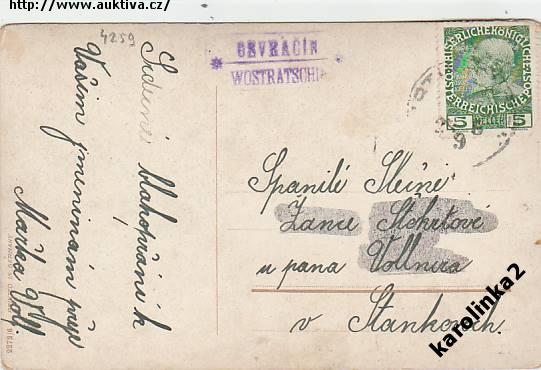 http://www.auktiva.cz/
4259
OEVRAČÍN
WOSTRATSCHIN
KAISERLICHE KÖNIGLICHE
ÖSTERREICHISCHE POST
5 HELLER 5
Srdečné blahopřání k
Vašim jmeninám přeje
Mařka Volf.
Spanilé Slečně
u pana Vollnera
v Stankovách.
karolinka2